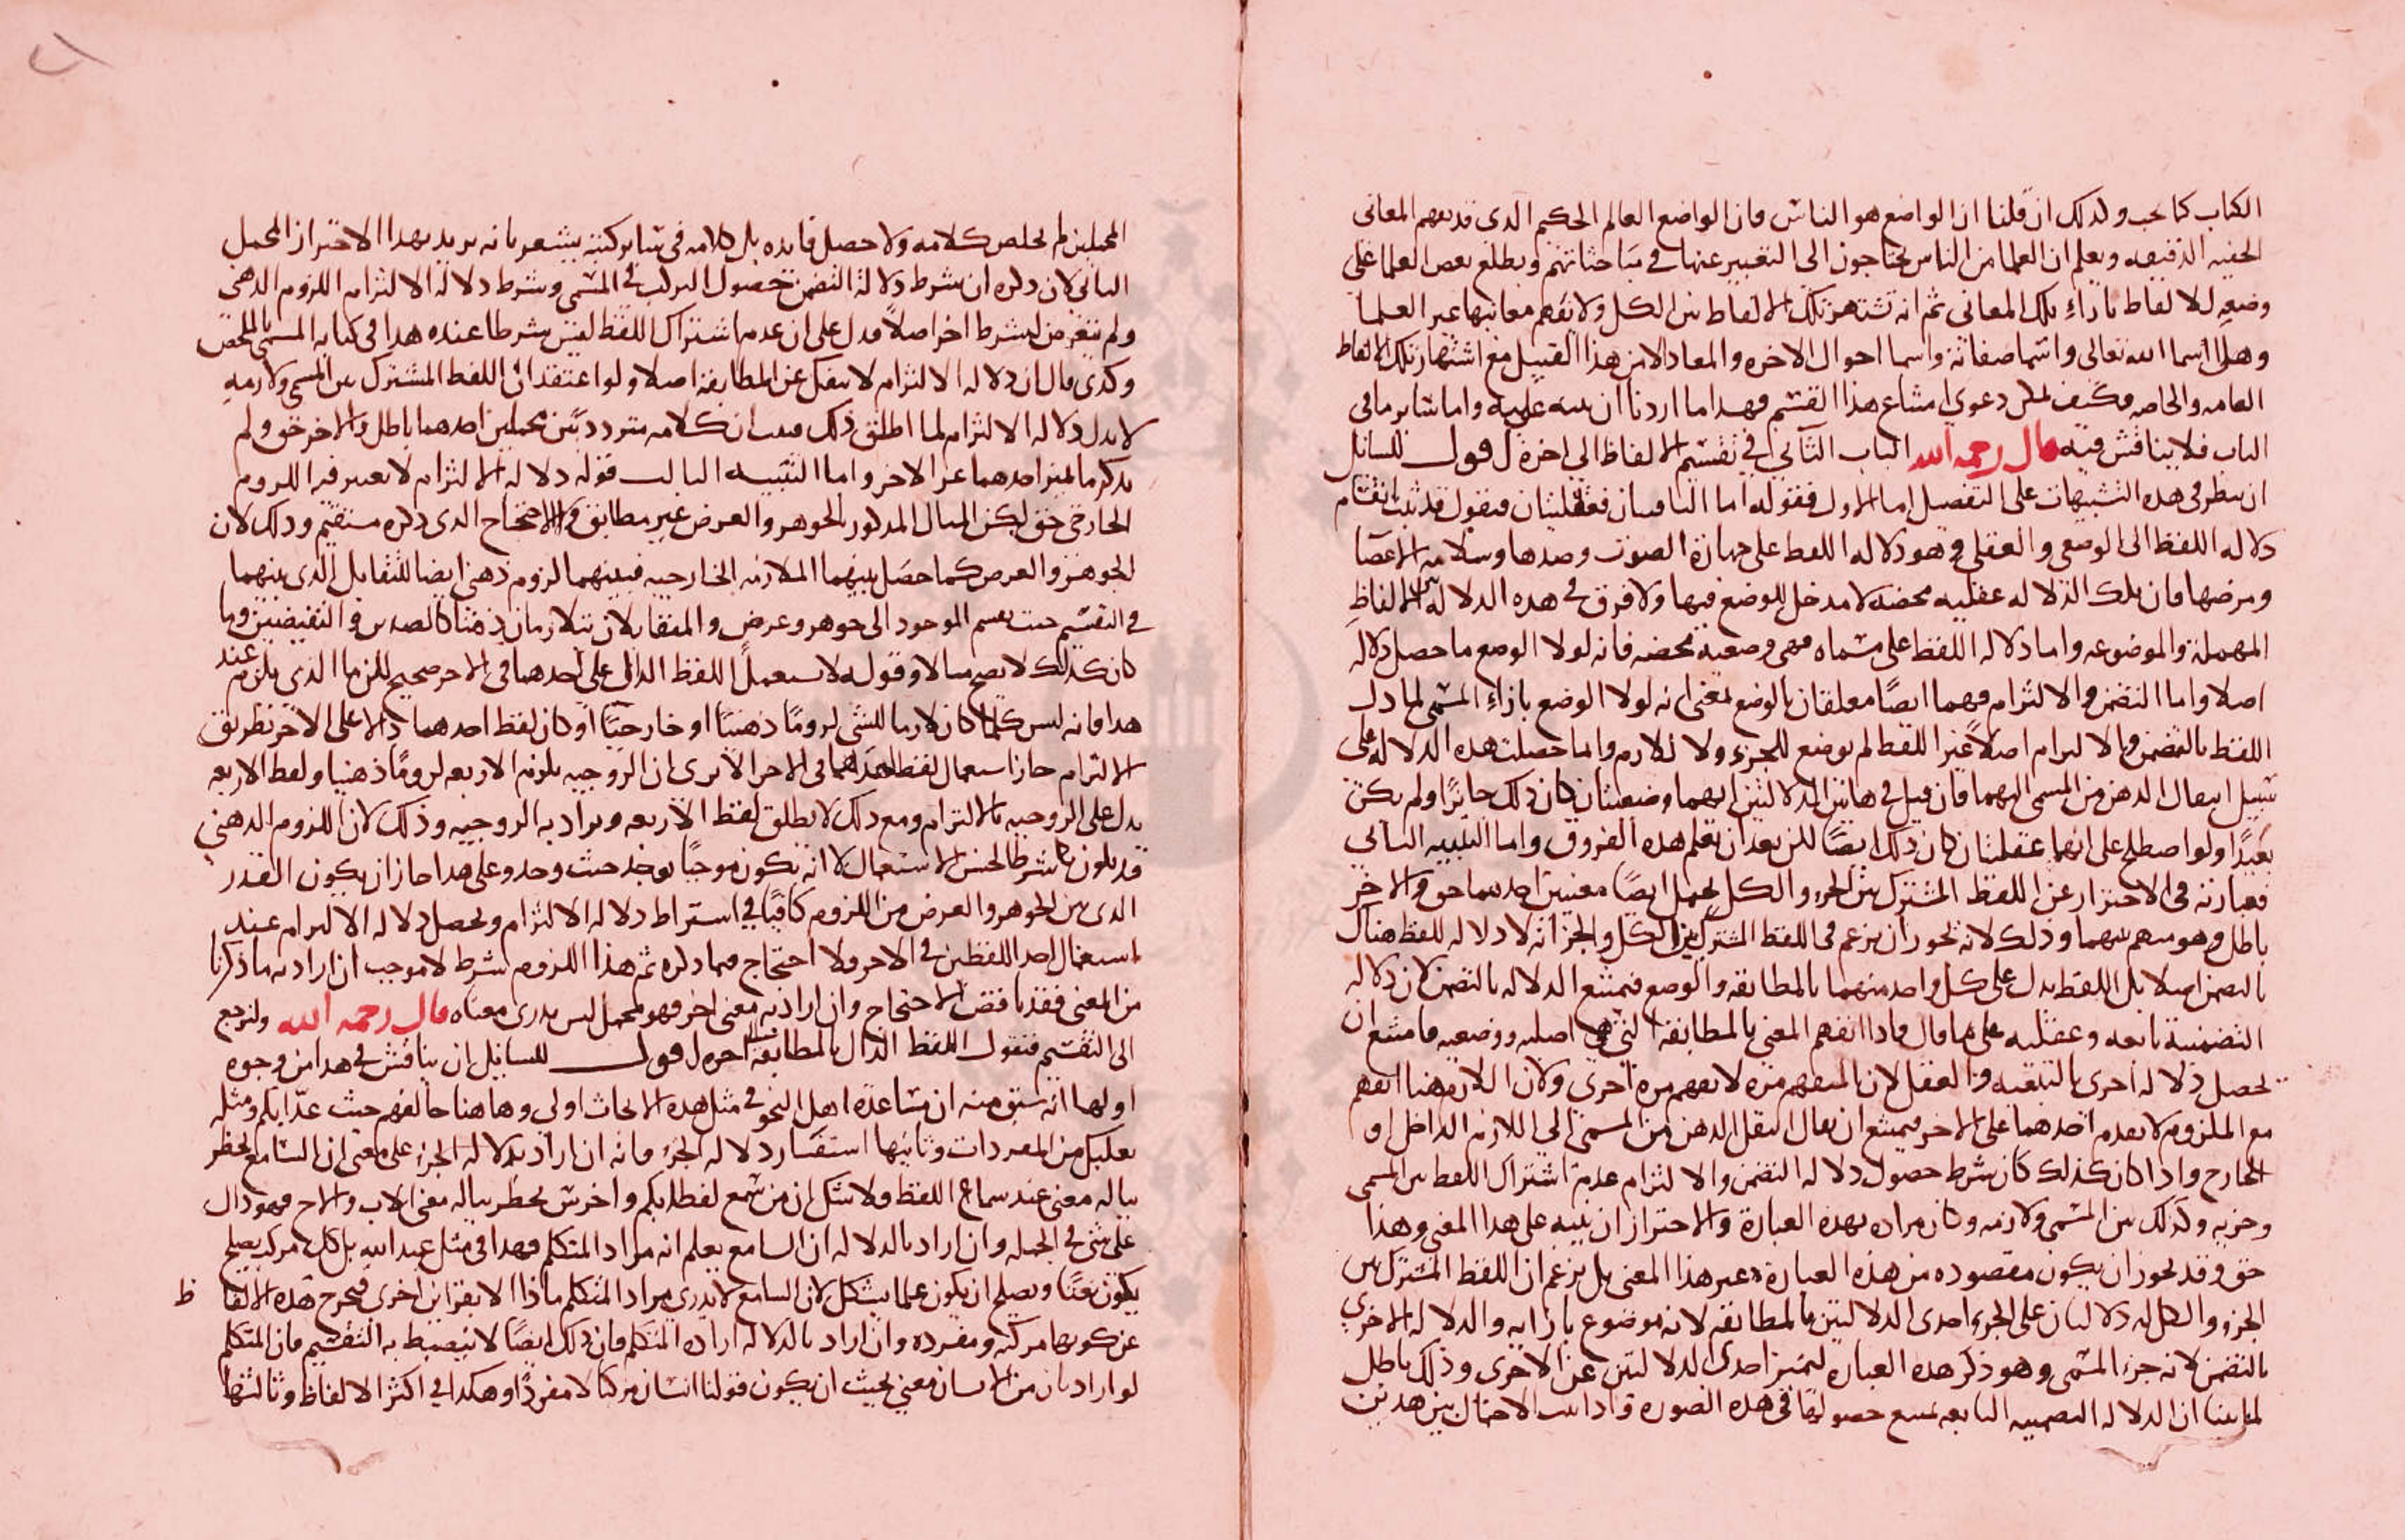 الكتاب كما يجب ولذلك ان قلنا ان الواضع هو الناس فان الواضع العالم الحكيم الذى قد يفهم المعانى
الخفيه الدقيقه ويعلم ان العلما من الناس يحتاجون الى التعبير عنها فى مباحثاتهم ويطلع بعض العلما على
وضعه للالفاظ بازاء تلك المعانى ثم انه تشتهر تلك الالفاظ بين الكل ولا يفهم معانيها غير العلما
وهل اسما الله تعالى واسما صفاته واسما احوال الاخره والمعاد الا من هذا القبيل مع اشتهار تلك الالفاظ
العامه والخاصه فكيف يمكن دعوى امتناع هذا القسم فهذا ما اردنا ان ننبه عليه واما سائر ما فى
الباب فلا يناقش فيه قال رحمه الله الباب الثانى فى تقسيم الالفاظ الى اخره اقول للسائل
ان ينظر فى هذه التنبيهات على التفصيل اما الاول فقوله اما الباقيتان فعقليتان فنقول قد ثبت انقسام
دلاله اللفظ الى الوضعى والعقلى وهو دلاله اللفظ على جهازة الصوت وضدها وسلامه الاعضا
ومرضها فان تلك الدلاله عقليه محضه لا مدخل للوضع فيها ولا فرق فى هذه الدلاله بين الالفاظ
المهملة والموضوعه واما دلاله اللفظ على مسماه فهى وضعية محضه فانه لولا الوضع ما حصل دلاله
اصلا واما التضمن والالتزام فهما ايضا معلقان بالوضع بمعنى انه لولا الوضع بازاء المسمى لما دل
اللفظ بالتضمن والالتزام اصلا غير اللفظ لم يوضع للجزء ولا للازم وانما حصلت هذه الدلاله على
سبيل انتقال الذهن من المسمى اليهما فان قيل فى هاتين الدلالتين انهما وضعيتان كان ذلك جائزا ولم يكن
بعيدا ولو اصطلح على انهما عقليتان كان ذلك ايضا لكن بعد ان يعلم هذه الفروق واما التنبيه الثانى
فعبارته فى الاحتراز عن اللفظ المشترك بين الجزء والكل يحتمل ايضا معنيين احدهما حق والاخر
باطل وهو منهم بينهما وذلك لانه يجوز ان يزعم فى اللفظ المشترك بين الكل والجزء انه لا دلاله للفظ هناك
بالتضمن اصلا بل اللفظ يدل على كل واحد منهما بالمطابقه والوضع فيمتنع الدلاله بالتضمن لان دلاله
التضمنية تابعه وعقليه على ما قال واذا انفهم المعنى بالمطابقه التى هى اصليه ووضعيه فامتنع ان
تحصل دلاله اخرى بالتبعيه والعقل لان المنفهم مرة لا يفهم مرة اخرى ولان اللازم هنا انفهم
مع الملزوم لا بعدم احدهما على الاخر فيمتنع ان يقال انتقل الذهن من المسمى الى اللازم الداخل او
الخارج واذا كان كذلك كان شرط حصول دلاله التضمن والالتزام عدم اشتراك اللفظ بين المسمى
وجزيه وكذلك بين المسمى ولازمه وكان مراده بهذه العبارة والاحتراز ان ينبه على هذا المعنى وهذا
حق وقد يجوز ان يكون مقصوده من هذه العبارة غير هذا المعنى بل يزعم ان اللفظ المشترك بين
الجزء والكل له دلالتان على الجزء احدى الدلالتين بالمطابقه لانه موضوع بازايه والدلاله الاخرى
بالتضمن لانه جزء المسمى وهو ذكر هذه العبارة ليميز احدى الدلالتين عن الاخرى وذلك باطل
لما بينا ان الدلاله التضمنيه التابعه يمتنع حصولها فى هذه الصوره واذا ثبت الاحتمال بين هذين
المحملين لم يخلص كلامه ولا حصل فايده بل كلامه فى سائر كتبه يشعر بانه يريد بهذا الاحتراز المحمل
الثانى لان ذكره ان شرط دلالة التضمن حصول التركب فى المسمى وشرط دلاله الالتزام اللزوم الذهنى
ولم يتعرض لشرط اخر اصلا فدل على ان عدم اشتراك اللفظ ليس بشرط عنده هذا فى كتابه المسمى بالملخص
وكذى قال ان دلاله الالتزام لا ينفك عن المطابقه اصلا ولو اعتقد ان اللفظ المشترك بين المسمى ولازمه
لا يدل دلاله الالتزام لما اطلق ذلك فثبت ان كلامه متردد بين محملين احدهما باطل والاخر حق ولم
يذكر ما يميز احدهما عن الاخر واما التنبيه الثالث قوله دلاله الالتزام لا يعتبر فيه اللزوم
الخارجى حق لكن المثال المذكور الجوهر والعرض غير مطابق والاحتجاج الذى ذكره مستقيم وذلك لان
الجوهر والعرض كما حصل بينهما الملازمه الخارجيه فبينهما لزوم ذهنى ايضا للتقابل الذى بينهما
فى التقسيم حيث يقسم الموجود الى جوهر وعرض والمتقابلان يتلازمان ذهنا كالضدين والنقيضين وما
كان كذلك لا يصح مثالا وقوله لا يستعمل اللفظ الدال على احدهما فى الاخر صحيح لكن ما الذى يلزم عند
هذا فانه ليس كلما كان لازما للشى لزوما ذهنيا او خارجيا او كان لفظ احدهما دالا على الاخر بطريق
الالتزام جاز استعمال لفظ احدهما فى الاخر الا ترى ان الزوجيه يلزم الاربعه لزوما ذهنيا ولفظ الاربعه
يدل على الزوجيه بالالتزام ومع ذلك لا يطلق لفظ الاربعه ويراد به الزوجيه وذلك لان اللزوم الذهنى
قد يكون شرطا لحسن الاستعمال لا انه يكون موجبا يوجد حيث وجد وعلى هذا جاز ان يكون القدر
الذى بين الجوهر والعرض من اللزوم كافيا فى اشتراط دلاله الالتزام ويحصل دلاله الالتزام عند
استعمال احد اللفظين فى الاخر فلا احتجاج فيما ذكره ثم هذا اللزوم شرط لا موجب ان اراد به ما ذكرنا
من المعنى فقد ناقض الاحتجاج وان اراد به معنى اخر فهو محمل ليس يدرى معناه قال رحمه الله ولنرجع
الى التقسيم فنقول اللفظ الدال بالمطابقة الى اخره اقول للسائل ان يناقش فى هذا من وجوه
اولها انه سبق منه ان مساعدة اهل النحو فى مثل هذه الابحاث اولى وها هنا خالفهم حيث عد ابكم ومثله
بعلبك من المفردات وثانيها استفسار دلاله الجزء فانه ان اراد بدلاله الجزء على معنى ان السامع يخطر
بباله معنى عند سماع اللفظ فلا شك ان من سمع لفظ ابكم واخرس يخطر بباله معنى الاب والاخ فهو دال
على شى فى الجمله وان اراد بالدلاله ان السامع يعلم انه مراد المتكلم فهذا فى مثل عبد الله بل كل مركب يصلح
يكون نعتا ويصلح ان يكون علما يشكل لان السامع لا يدرى مراد المتكلم ماذا الا بقراين اخرى فيخرج هذه الالفاظ
عن كونها مركبه ومفرده وان اراد بالدلاله اراده المتكلم فان ذلك ايضا لا ينضبط به التقسيم فان المتكلم
لو اراد بان من الانسان معنى بحيث ان يكون قولنا انسان مركبا لا مفردا وهكذا فى اكثر الالفاظ وثالثها